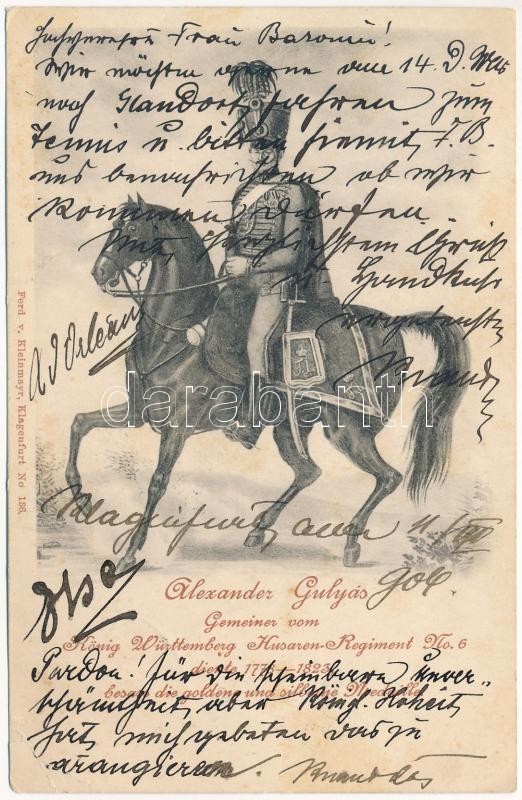 Hochverehrte Frau Baronin!
Wir möchten gerne am 14. D. Mts
nach Glandorf fahren zum
Tennis u. bitten hiemit, F. B.
uns benachrichten ob wir
kommen dürfen.
Mit herzlichstem Gruß
u Handkuß
A d'Orléans
Ferd v. Kleinmayr, Klagenfurt No 186.
darabanth
Klagenfurt, am 11/VII
906.
Elsa
Alexander Gulyás
Gemeiner vom
König Württemberg Husaren-Regiment No. 6
diente 1778—1823
besass die goldene und silberne Medaille
Pardon! für die scheinbare Unver-
schämtheit, aber Königl. Hoheit,
hat mich gebeten das zu
arangieren.